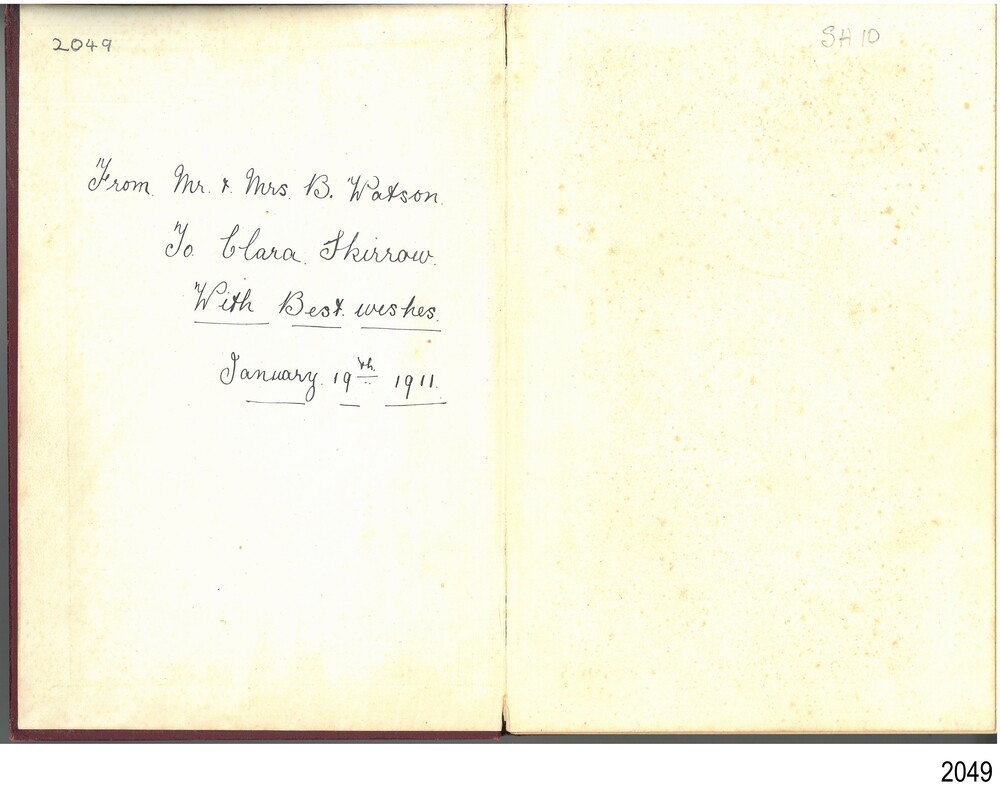 2049
SH 10
From Mr. & Mrs. B. Watson.
To Clara Skirrow.
With Best wishes.
January 19th 1911.
2049